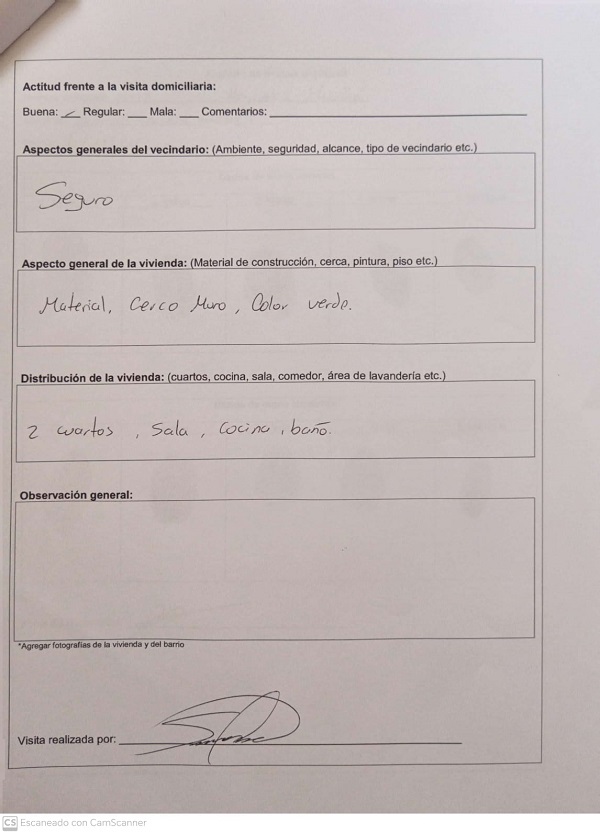 Actitud frente a la visita domiciliaria:
Buena: ✓ Regular: ___ Mala: ___ Comentarios: ___
Aspectos generales del vecindario: (Ambiente, seguridad, alcance, tipo de vecindario etc.)
Seguro
Aspecto general de la vivienda: (Material de construcción, cerca, pintura, piso etc.)
Material, Cerco Muro, Color verde.
Distribución de la vivienda: (cuartos, cocina, sala, comedor, área de lavandería etc.)
2 cuartos, Sala, Cocina, baño.
Observación general:
*Agregar fotografías de la vivienda y del barrio
Visita realizada por:
CS Escaneado con CamScanner